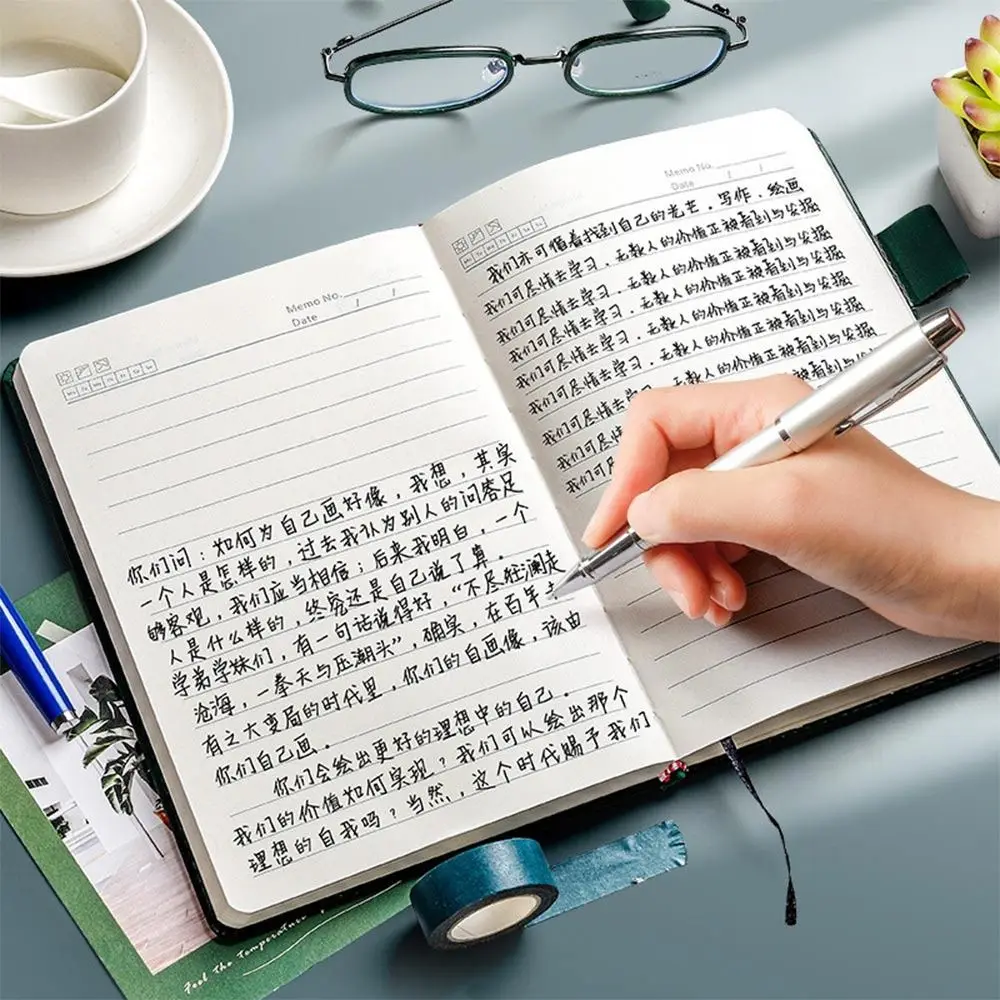 Memo No.
Date / /
Mo Tu We Th Fr Sa Su
你们问：如何为自己画好像，我想，其实
一个人是怎样的，过去我认为别人的问答足
够客观，我们应当相信；后来我明白，一个
人是什么样的，终究还是自己说了算。
学弟学妹们，有一句话说得好，“不尽狂澜走
沧海，一拳天与压潮头”，确实，在百年
有之大变局的时代里，你们的自画像，该由
你们自己画。
你们会绘出更好的理想中的自己。
我们的价值如何实现？我们可以绘出那个
理想的自我吗？当然，这个时代赐予我们
Memo No.
Date / /
Mo Tu We Th Fr Sa Su
我们亦可循着找到自己的光芒．写作．绘画
我们可尽情去学习．无数人的价值正被看到与发掘
我们可尽情去学习．无数人的价值正被看到与发掘
我们可尽情去学习．无数人的价值正被看到与发掘
我们可尽情去学习．无数人的价值正被看到与发掘
我们可尽情去学习．无数人的价值正被看到与发掘
我们可尽情去
我们可尽情
我们可尽
Feel the temperature